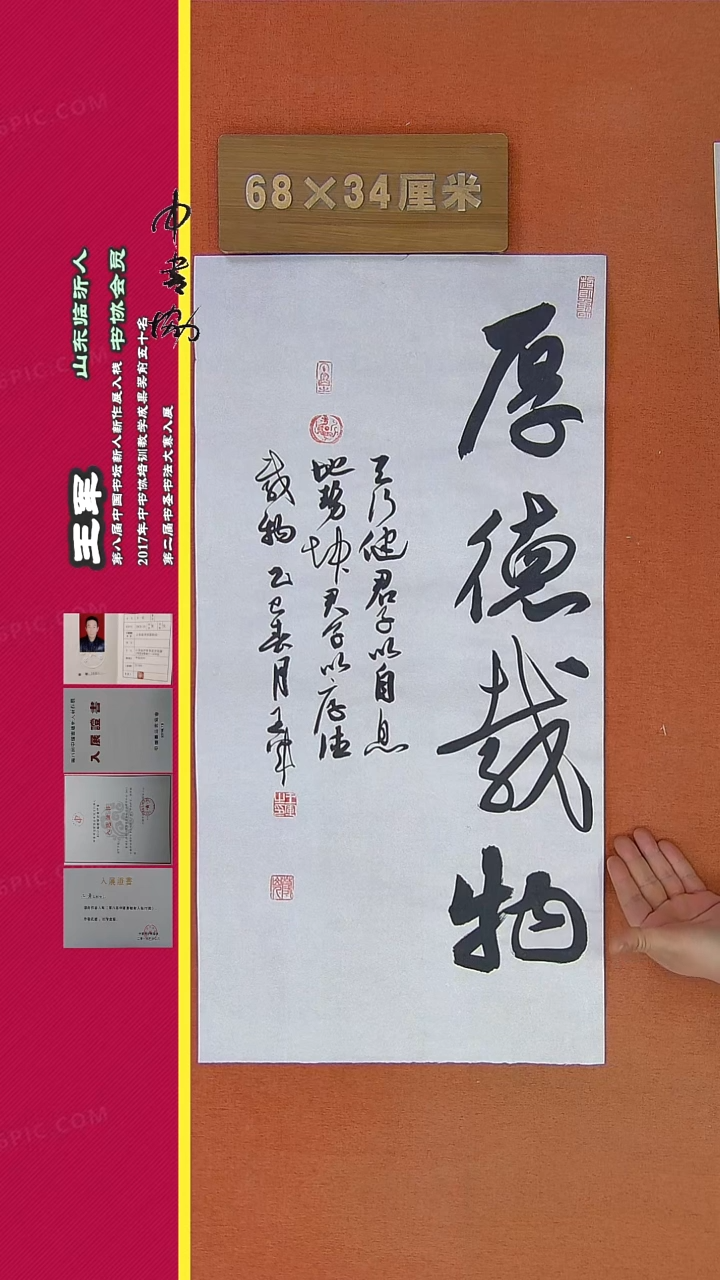 68×34厘米
厚德载物
天行健君子以自息
地势坤君子以厚德
载物 乙巳春月王军
王军
山东临沂人
书协会员
中书协
第八届中国书坛新人新作展入展
2017年中书协培训教学成果奖前五十名
第二届书圣书法大赛入展
入展證書